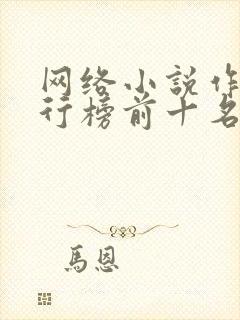 网络小说作
行榜前十名
馬恩